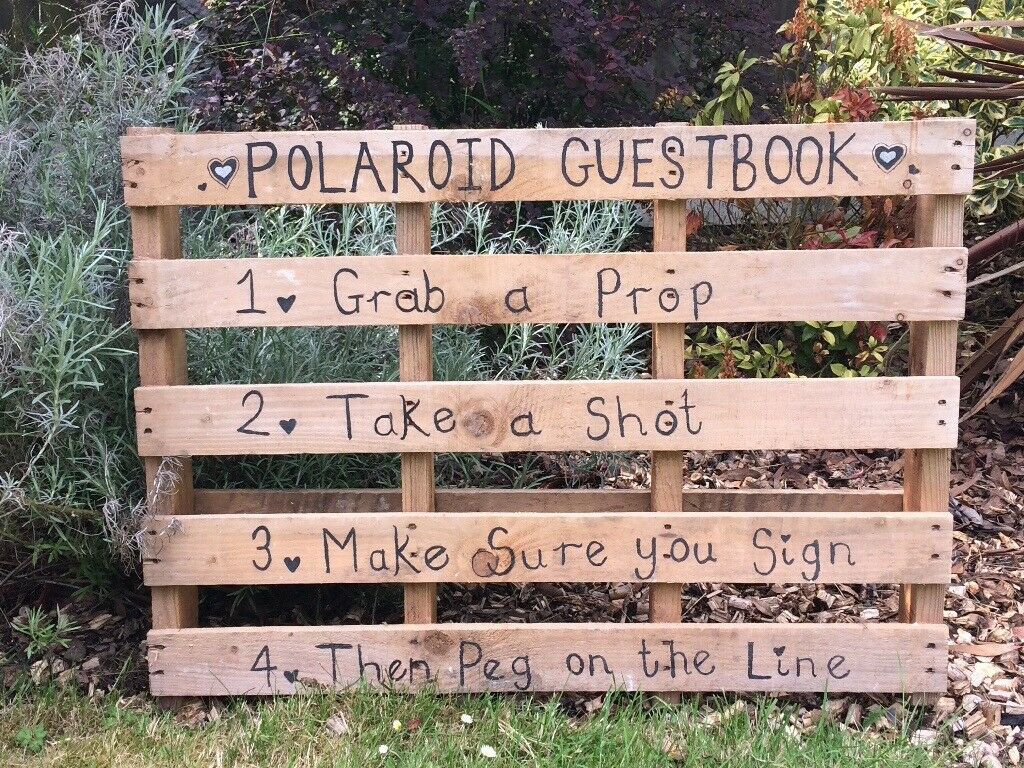 POLAROID GUESTBOOK
1. Grab a Prop
2. Take a Shot
3. Make Sure you Sign
4. Then Peg on the Line